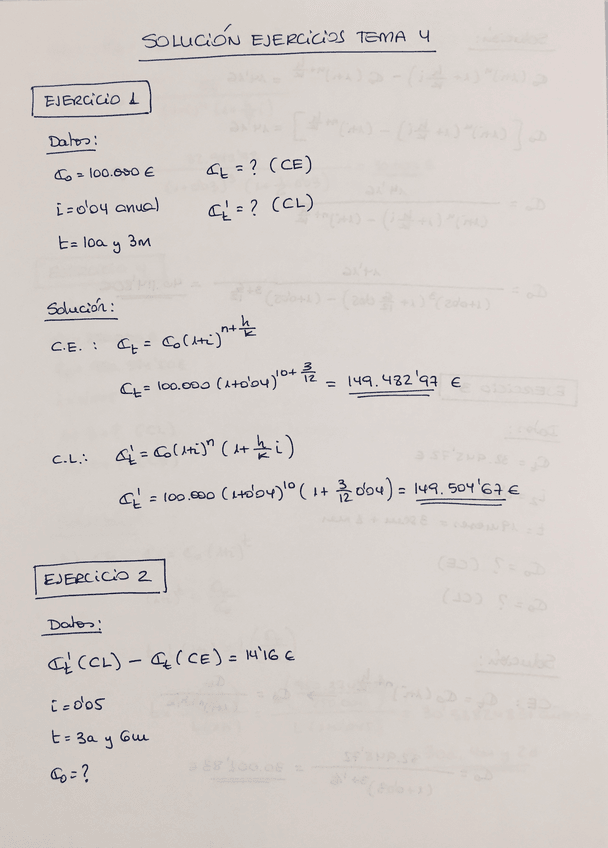 SOLUCIÓN EJERCICIOS TEMA 4
EJERCICIO 1
Datos:
C₀ = 100.000 € Cₜ = ? (CE)
i = 0'04 anual Cₜ' = ? (CL)
t = 10a y 3m
Solución:
C.E. : Cₜ = C₀(1+i)^(n + h/k)
Cₜ = 100.000 (1+0'04)^(10 + 3/12) = 149.482'97 €
C.L.: Cₜ' = C₀(1+i)^n (1 + h/k i)
Cₜ' = 100.000 (1+0'04)^10 (1 + 3/12 0'04) = 149.504'67 €
EJERCICIO 2
Datos:
Cₜ'(CL) − Cₜ(CE) = 14'16 €
i = 0'05
t = 3a y 6m
C₀ = ?